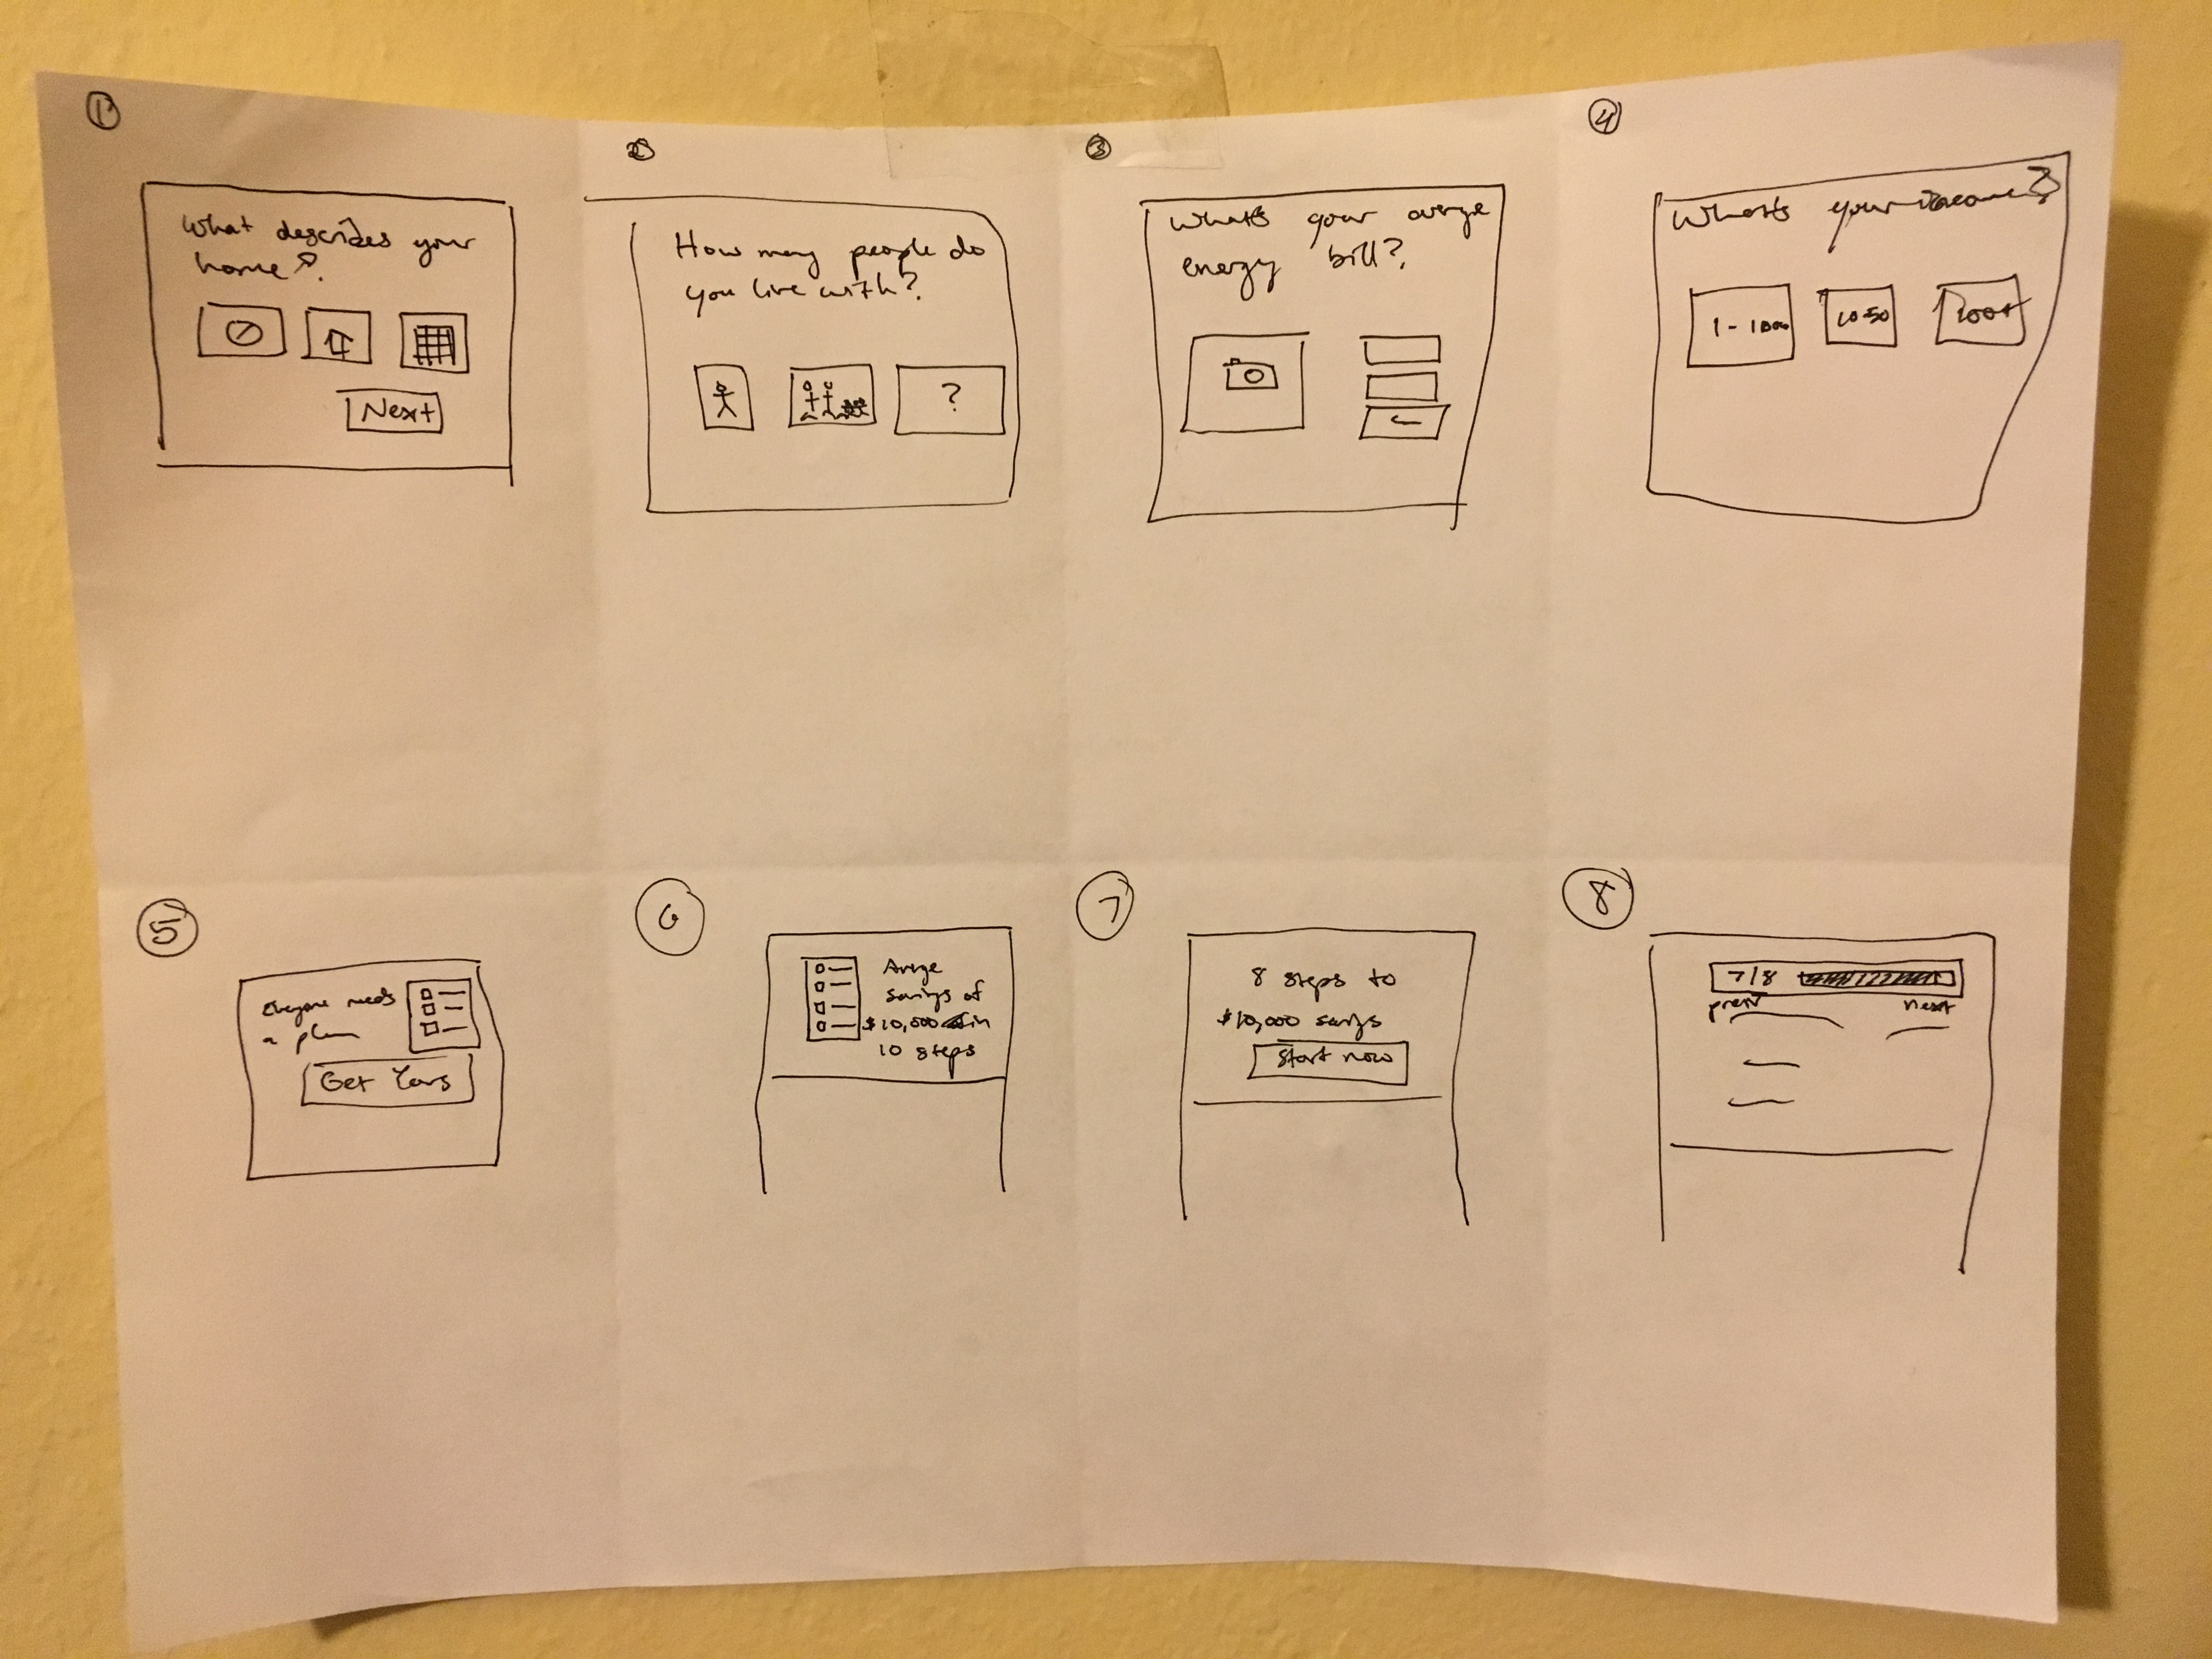 1
What describes your
home?
Next
2
How many people do
you live with?
?
3
What's your averge
energy bill?
4
What's your income?
1-100
10-50
200+
5
Everyone needs
a plan
Get Yours
6
Averge
savings of
$10,000 in
10 steps
7
8 steps to
$10,000 savings
Start now
8
7/8
prev next